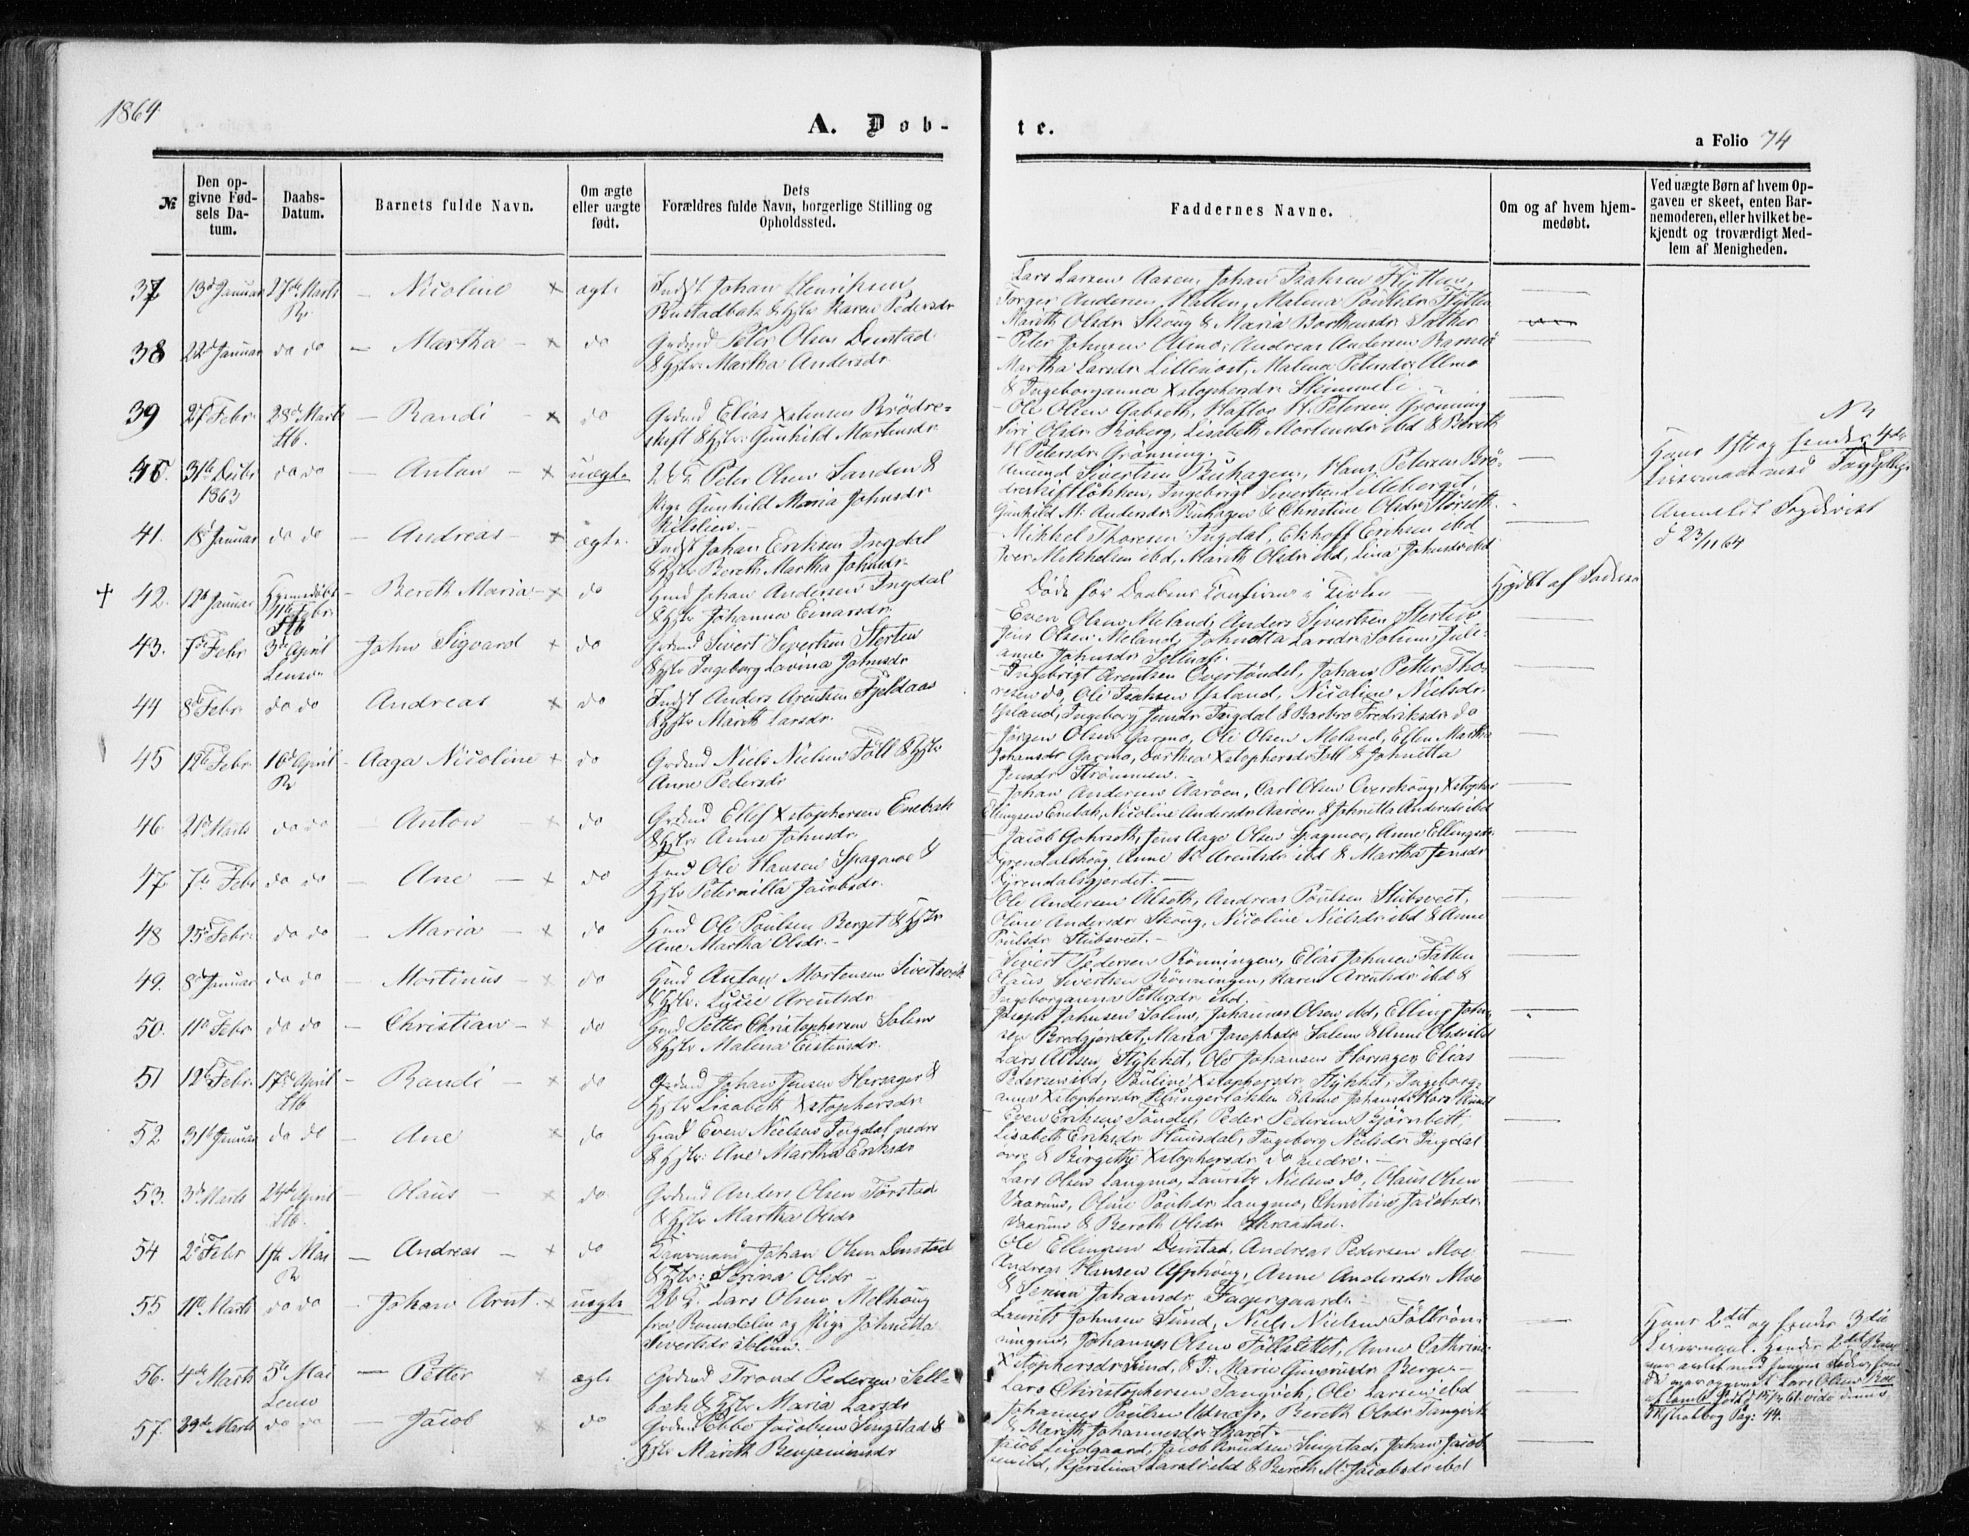 1864
A. Døb-
te.
a Folio 74
№
Den op-
givne Fød-
sels Da-
tum.
Daabs-
Datum.
Barnets fulde Navn.
Om ægte
eller uægte
født.
Dets
Forældres fulde Navn, borgerlige Stilling og
Opholdssted.
Faddernes Navne.
Om og af hvem hjem-
medøbt.
Ved uægte Børn af hvem Op-
gaven er skeet, enten Bar-
nemoderen, eller hvilket be-
kjendt og troværdigt Med-
lem af Menigheden.
37 13de Januar 27de Marts — Nicoline × ægte Indst Johan Henriksen
Bustadbak & Hstr Karen Pedersdr
Lars Larsen Aasen, Johan Isaksen Flytten,
Torger Andersen Hatten, Malena Paulsdr Flytten
Marith Olsdr Skoug & Maria Borthensdr Sather
38 22de Januar do do — Martha × do Grdmd Peter Olsen Denstad
& Hstr: Martha Andersdr
Peter Johnsen Almo, Andreas Andersen Ramsö
Martha Larsdr Lillemost, Malena Petersdr Almo
& Ingeborganna Xstophersdr Skimmeli
39 27 Febr 28de Marts — Randi × do Grdmd Elias Xstensen Brödre-
skift & Hstr: Gunhild Martinsdr
Stb.
Ole Olsen Gabseth, Haftor H. Petersen Grönning
Siri Olsdr Roberg, Lisabeth Mortensdr ibd & Bereth
H Petersdr Grønning.
40. 31te Decbr 1863 do do — Anton × uægte
U. G. Peter Olsen Sanden &
Pige Gunhild Maria Johnsdr
Nielslien.
Amund Sivertsen Buhagen, Hans Petersen Brö-
dreskiftløkken, Ingebrigt Sivertsen Elleberget,
Gunhild M: Andersdr Buhagen & Christine Olsdr Størseth
NB
Hans 1ste og hendes 4de
Leiermaal med
Anmeldt Fogderiet
d 23/11 64
41. 18 Januar do do — Andreas × ægte Indst Johan Eriksen Ingdal
& Hstr Bereth Martha Johnsdr
Mikkel Thoresen Ingdal, Ekhoff Eriksen ibd
Iver Mikkelsen ibd, Marith Olsdr ibd, Lina Johnsdr ibd
† 42. 12te Januar Hjemmedøbt
Febr:
Stb — Bereth Maria × do Hmd Johan Andersen Ingdal
& Hstr Johanna Einarsdr
Døde før Daabens Confirm i Kirken —
Hjdbt af Faderen
43. 7de Febr 3de April
Lensv. John Sigvard × do Grdmd Sivert Sivertsen Sterten
& Hstr Ingeborg Lavina Johnsdr
Even Olsen Meland, Anders Sivertsen Sterten
Jens Olsen Meland, Johnetta Larsdr Solem, Juli-
anne Johnsdr Solnæs.
44 8de Febr do do Andreas × do Indst Anders Arentsen Fjeldaas
& Hstr Marith Larsdr
Ingebrigt Arentsen Overtöndel, Johan Petter Tho-
resen do, Ole Isaksen Ysland, Nicolien Nielsdr
Ysland, Ingeborg Jensdr Ingdal & Barbro Fredriksdr do
45 12te Febr 10de April
Rr — Aaga Nicoline × do Grdmd Niels Nielsen Foll & Hstr
Anne Pedersdr
Jörgen Olsen Garmo, Ole Olsen Meland, Ellen Martha
Johansdr Garmo, Dorthea Xstophersdr Foll & Johnetta
Jensdr Strömmen. —
46 21de Marts do do — Anton × do Grdmd Ellef Xstophersen Enebak
& Hstr Anne Johnsdr
Johan Andersen Aaröen, Carl Olsen Overskoug, Xstopher
Ellingsen Enebak, Nicoline Andersdr Aaröen & Johnetta Andersdr ibd
47 7de Febr do do — Ane × do Hmd Ole Hansen Spagmoe &
Hstr Peternilla Jacobsdr
Jacob Gohseth, Jens Aage Olsen Spagmoe, Anne Ellingsdr
Dyrendalskoug, Anne K: Arentsdr ibd & Martha Jensdr
Dyrendalsgjerdet. —
48 25de Febr do do — Maria × do Hmd Ole Poulsen Berget & Hstr
Ane Martha Olsdr —
Ole Andersen Alseth, Andreas Poulsen Stubsveet,
Oline Andersdr Skoug, Nicoline Nielsdr ibd & Anne
Poulsdr Stubsveet. —
49. 8de Januar do do — Mortinus × do Hmd Anton Mortensen Sivertsvik
& Hstr: Lucie Arentsdr
Sivert Pedersen Rönningen, Elias Johnsen Fatten
Olaus Sivertsen Rönningen, Karen Arentsdr ibd &
Ingeborganna Pettersdr ibd.
50. 11te Febr do do — Christian × do Grdmd Petter Christophersen Solem
& Hstr Malena Eistensdr.
Joseph Johnsen Solem, Johannes Olsen ibd, Elling John-
sen Bredgjerdet, Maria Josephsdr Solem & Anne Olsdr ibd
51 12te Febr 17de April
Stb — Randi × do Grdmd Johan Jensen Horsager &
Hstr Lisabeth Xstophersdr
Lars Olsen Stykket, Ole Johansen Horsager, Elias
Pedersen ibd, Pauline Xstophersdr Stykket, Ingeborg-
anna Xstophersdr
52 31te Januar do do — Ane × do Hmd Even Nielsen Ingdal nedre
& Hstr: Ane Martha Eriksdr
Even Eriksen Töndel, Peder Pedersen Björnbett,
Lisabeth Eriksdr Hausdal, Ingeborg Nielsdr Ingdal
övre & Birgithe Xstophersdr do nedre. —
53. 3de Marts 24de April
Stb. — Olaus — × do Grdmd Anders Olsen Torstad
& Hstr Martha Olsdr
Lars Olsen Langmo, Lauritz Nielsen do, Olaus Olsen
Vaarum, Oline Poulsdr Langmo, Christine Jacobsdr
Vaarum & Bereth Olsdr Skraastad.
54 2de Febr 1ste Mai
Rr — Andreas — × do Kaarmand Johan Olsen Denstad
& Hstr: Serina Olsdr —
Ole Ellingsen Denstad, Andreas Pedersen Moe
Andreas Hansen Asphoug, Anne Andersdr Moe
& Serina Johansdr Fagergaard. —
55 11te Marts do do — Johan Arnt × uægte U. G. Lars Olsen Melhoug
fra Romsdalen og Pige Johnetta
Sivertsdr
Laurits Johnsen Sund, Niels Nielsen Follrön-
ningen, Johannes Olsen Follslettet, Anne Cathrine
Xstophersdr Sund, & P: Marie Gunersdr Berge —
Hans 2det og hendes 3die
Leiermaal. Hendes 2det Barn
var avlet med samme
Lars Olsen
vide denne
Mstralbog Pag: 44.
56. 4de Marts 5te Mai
Lensv — Petter × ægte Grdmd Trond Pedersen Sell-
bæk & Hstr Maria Larsdr
Lars Christophersen Tangvik, Ole Larsen ibd
Johannes Poulsen Udnæss, Bereth Olsdr Tangvik
& Marith Johannesdr Skaret. —
57. 29de Marts do do — Jacob × do Grdmd Ebbe Jacobsen Singstad &
Hstr Marith Benjaminsdr
Jacob Lindgaard, Jacob Knudsen Singstad, Johan Jacob-
sen ibd, Kjerstina Larsdr ibd & Bereth M: Jacobsdr ibd